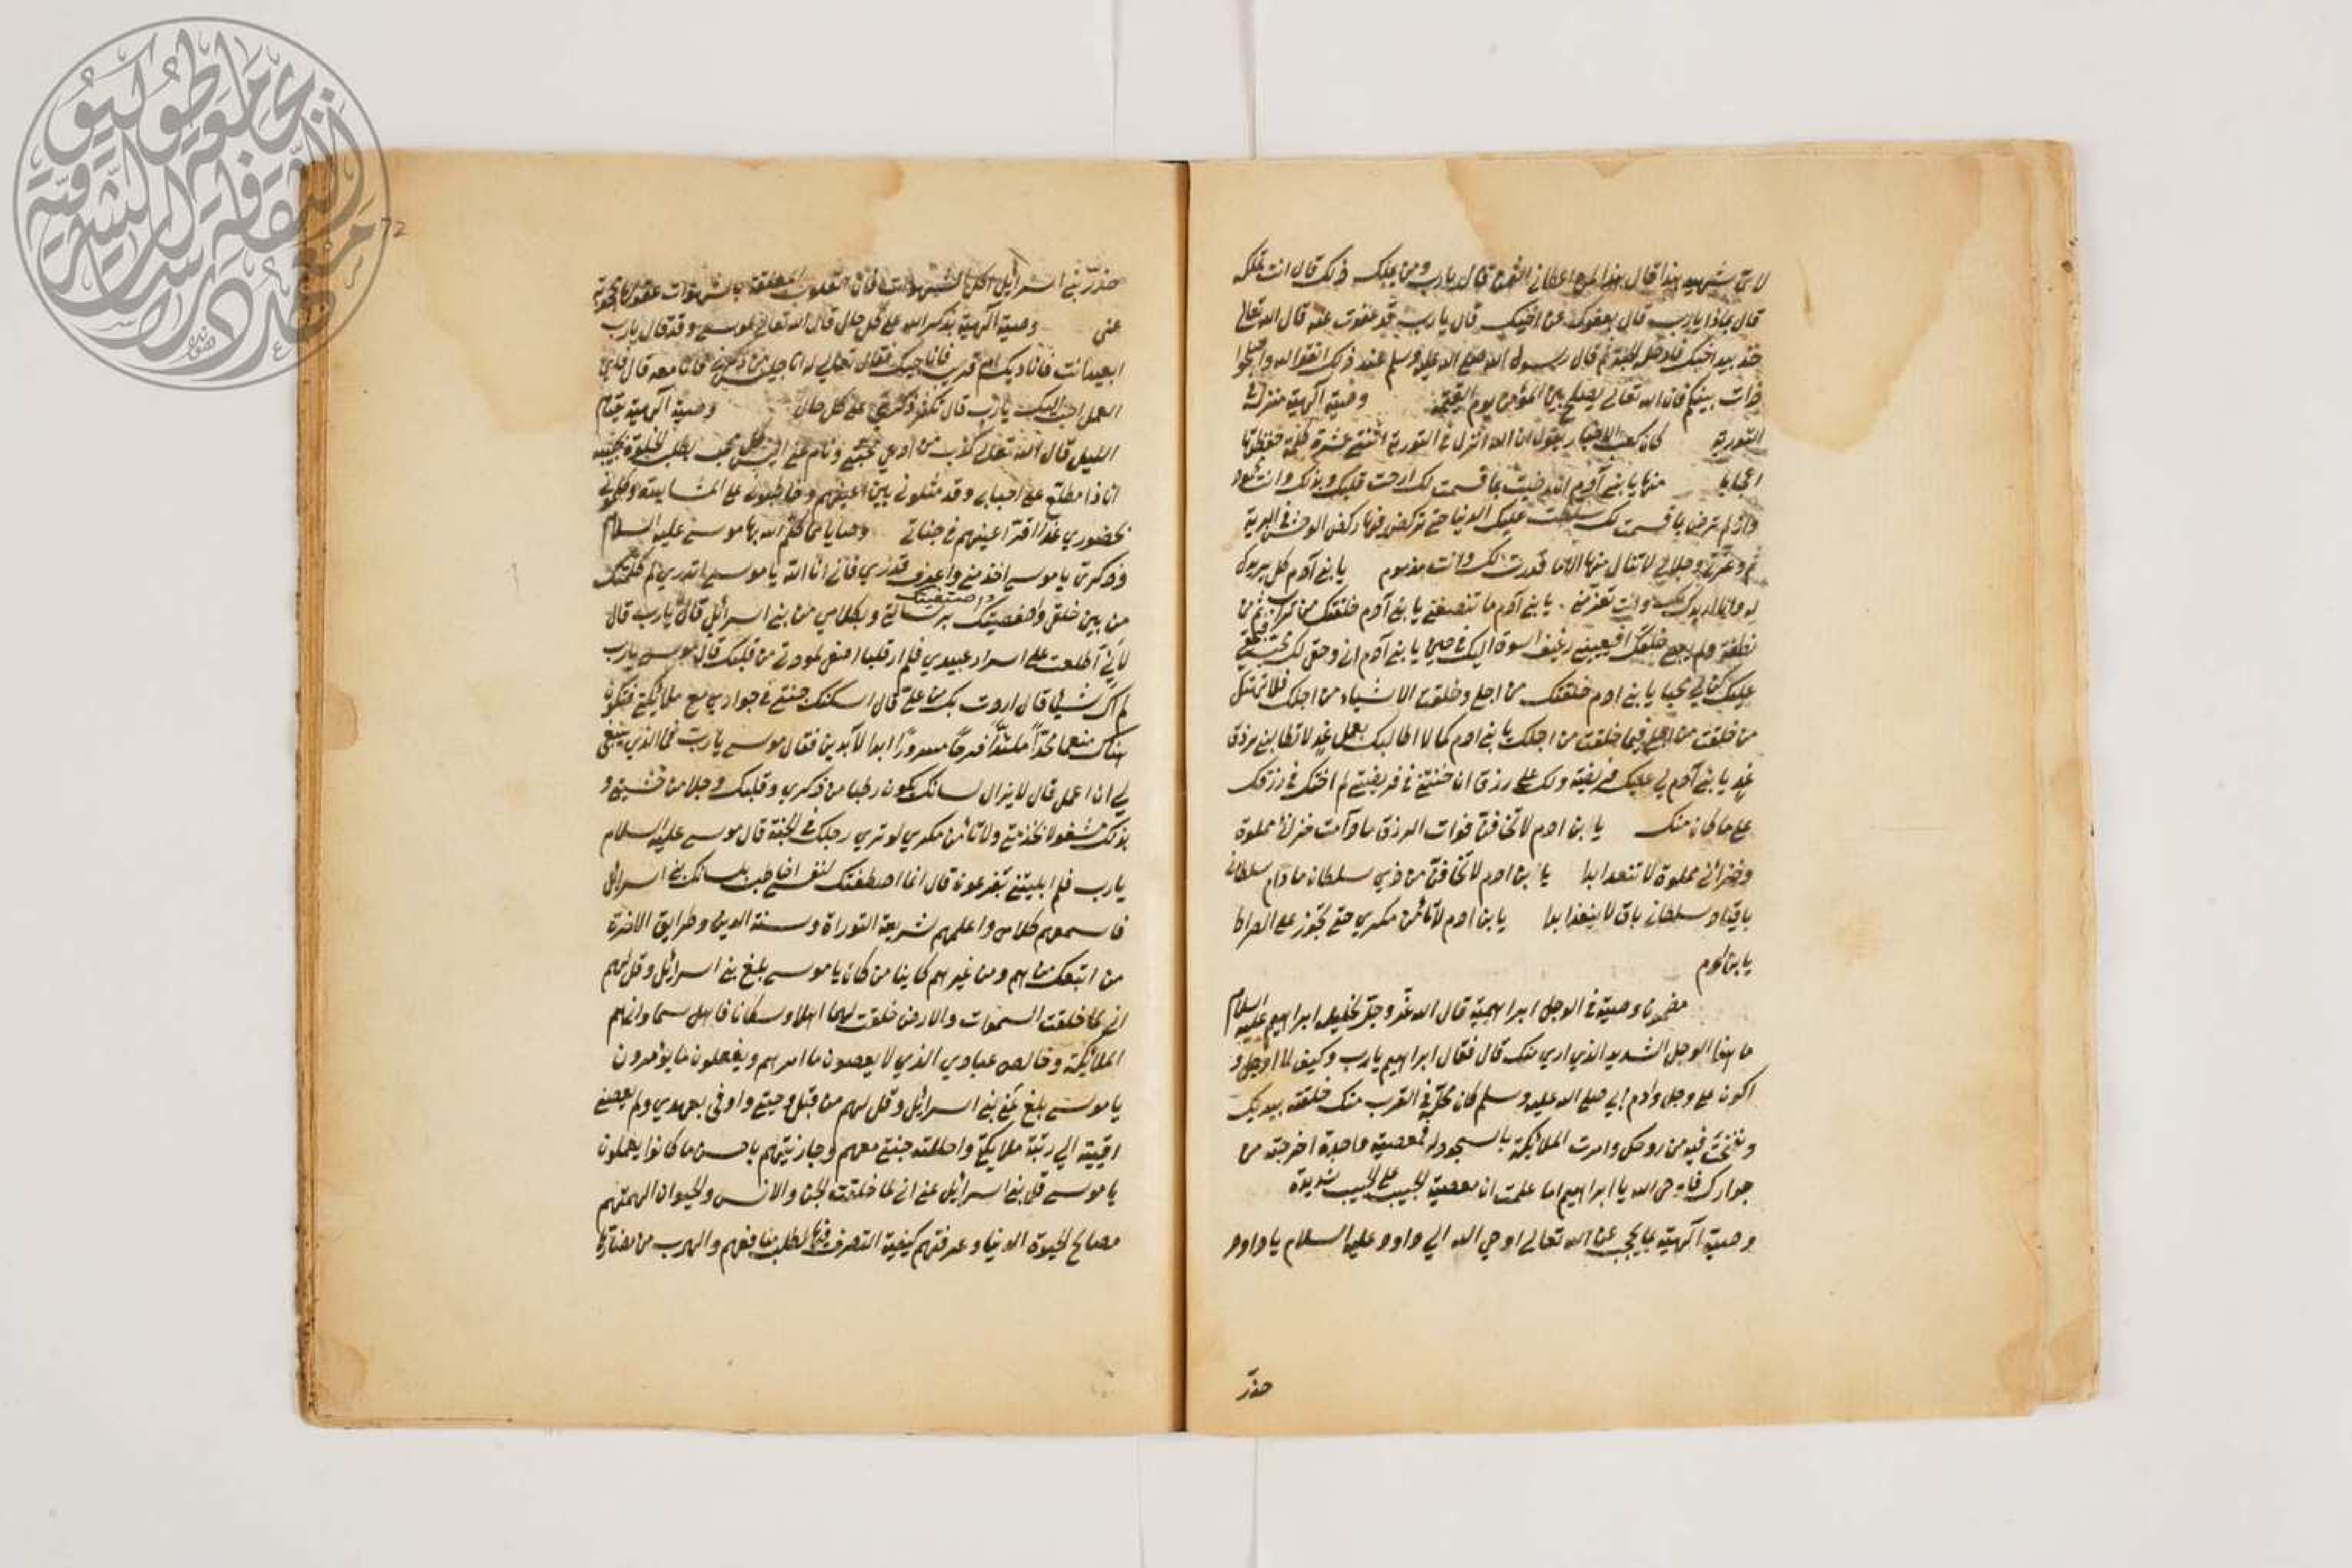 لاي شهيد هذا قال هذا لمن اعطاني الثمن قال يارب ومن يملك ذلك قال انت تملكه
قال بماذا يارب قال بعفوك عن اخيك قال يارب قد عفوت عنه قال الله تعالى
خذ بيد اخيك فادخل الجنة ثم قال رسول الله صلى الله عليه وسلم عند ذلك اتقوا الله واصلحوا
ذات بينكم فان الله تعالى يصلح بين المؤمنين يوم القيمة وصية آلهية منزلة
التورية كان كعب الاحبار يقول ان الله انزل في التورية اثنتى عشرة كلمة
منها يا بني آدم ان رضيت بما قسمت لك ارحت قلبك وبدنك وانت محمود
وان لم ترض بما قسمت لك سلطت عليك الدنيا حتى تركض فيها ركض الوحش في البرية
ثم وعزتي وجلالي لا تنال منها الا ما قدرت لك وانت مذموم يا بني آدم كل يريدك
له وانا اريدك لك وانت تفر مني يا بني آدم ما تنصفني يا بني آدم خلقتك من تراب ثم من
نطفة ولم يعي خلقك افيعييني رغيف اسوقه اليك في حين يا بني آدم اني وحقي لك محب فبحقي
عليك كن لي محبا يا بني ادم خلقتك من اجلي وخلقت الاشياء من اجلك فلا تهتك
ما خلقت من اجلي فيما خلقت من اجلك يا بني ادم كما لا اطالبك بعمل غد لا تطالبني برزق
غد يا بني آدم لي عليك فريضة ولك علي رزق ان خنتني في فريضتي لم اخنك في رزقك
على ما كان منك يا ابن ادم لا تخافن فوات الرزق ما دامت خزائني مملوة
وخزائني مملوة لا تنفد ابدا يا ابن ادم لا تخافن من ذي سلطان ما دام سلطاني
باقيا وسلطاني باق لا ينفد ابدا يا بن ادم لا تأمن مكري حتى تجوز على الصراط
يا بن ادم
مضمون وصية في الوجل ابراهيمية قال الله عز وجل لخليله ابراهيم عليه السلام
ما هذا الوجل الشديد الذي اري منك قال فقال ابراهيم يارب وكيف لا اوجل و
اكون على وجل وادم ابي صلى الله عليه وسلم كان محله في القرب منك خلقته بيدك
ونفخت فيه من روحك وامرت الملائكة بالسجود له فمعصية واحدة اخرجته من
جوارك فاوحى الله يا ابراهيم اما علمت ان معصية الحبيب على الحبيب شديدة
وصية آلهية بما يحجب عن الله تعالى اوحي الله الي داود عليه السلام يا داود
حذر
72
حذر بني اسرائيل اكل الشهوات فان القلوب المعلقة بالشهوات عقولها محجوبة
عني وصية آلهية بذكر الله على كل حال قال الله تعالى لموسى وقد قال يارب
ابعيد انت فاناديك ام قريب فاناجيك فقال تعالى له انا جليس من ذكرني وانا معه قال فاي
العمل احب اليك يارب قال تكثر ذكري على كل حال وصية آلهية بقيام
الليل قال الله تعالى كذب من ادعي محبتي ونام عني اليس كل محب يطلب الخلوة بحبيبه
انا ذا مطلع على احبابي وقد مثلوني بين اعينهم وخاطبوني على المشاهدة وكلموني
بحضوري غدا اقر اعينهم في جناني وصايا مما كلم الله بها موسى عليه السلام
وذكرى يا موسى اخذ مني واعرف قدري فاني انا الله يا موسى اتدري لم كلمتك
من بين خلقي واصطفيتك برسالتي وبكلامي من بني اسرائيل قال لا يارب قال
لاني اطلعت على اسرار عبيدي فلم ار قلبا اصفى لمودتي من قلبك قال موسى يارب
لم اك شيئا قال اردت بك من على قال اسكنتك جنتي في جواري مع ملائكتي فتكون
هناك منعما مخلدا ملتذا فرحا مسرورا ابد الآبدين فقال موسى يارب فما الذي ينبغي
لي ان اعمل قال لا يزال لسانك يكون رطبا من ذكري وقلبك وجلا من خشيتي و
بدنك مشغولا بخدمتي ولا تأمن مكري لو تري رجلك في الجنة قال موسى عليه السلام
يارب فلم ابليتني بفرعون قال انما اصطفتك لنفسي اخاطب بلسانك بني اسرائيل
فاسمعهم كلامي واعلمهم شريعة التوراة وسنة الدين وطرايق الاخرة
من اتبعك منهم ومن غيرهم كاينا من كان يا موسى بلغ بني اسرائيل وقل لهم
اني لما خلقت السموات والارض خلقت لهما اهلا وسكانا فاهل سماواتي هم
الملائكة وخالص عبادي الذي لا يعصون ما امرهم ويفعلون ما يؤمرون
يا موسى بلغ عني بني اسرائيل وقل لهم من قبل وصيتي واوفى بعهدي ولم يعصني
رقيته الي رتبة ملايكتي واحللته جنتي معهم وجازيتهم باحسن ما كانوا يعملون
يا موسى قل بني اسرائيل عني اني لما خلقت الجن والانس والحيوان الهمتهم
مصالح الحيوة الدنيا وعرفتهم كيفية التصرف فيها لطلب منافعهم والهرب من مضارها